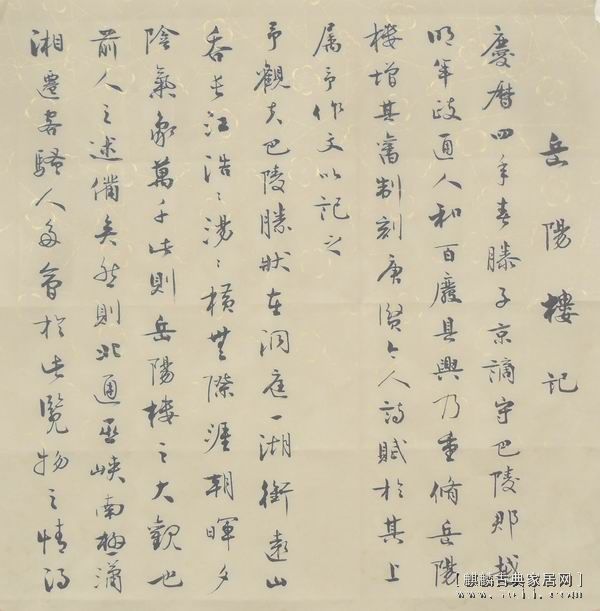 岳陽樓記
慶曆四年春滕子京謫守巴陵郡越
明年政通人和百廢具興乃重脩岳陽
樓增其舊制刻唐賢今人詩賦於其上
属予作文以記之
予觀夫巴陵勝狀在洞庭一湖銜遠山
吞長江浩〻湯〻橫無際涯朝暉夕
陰氣象萬千此則岳陽樓之大觀也
前人之述備矣然則北通巫峽南極瀟
湘遷客騷人多會於此覽物之情得
[麒麟古典家居网]